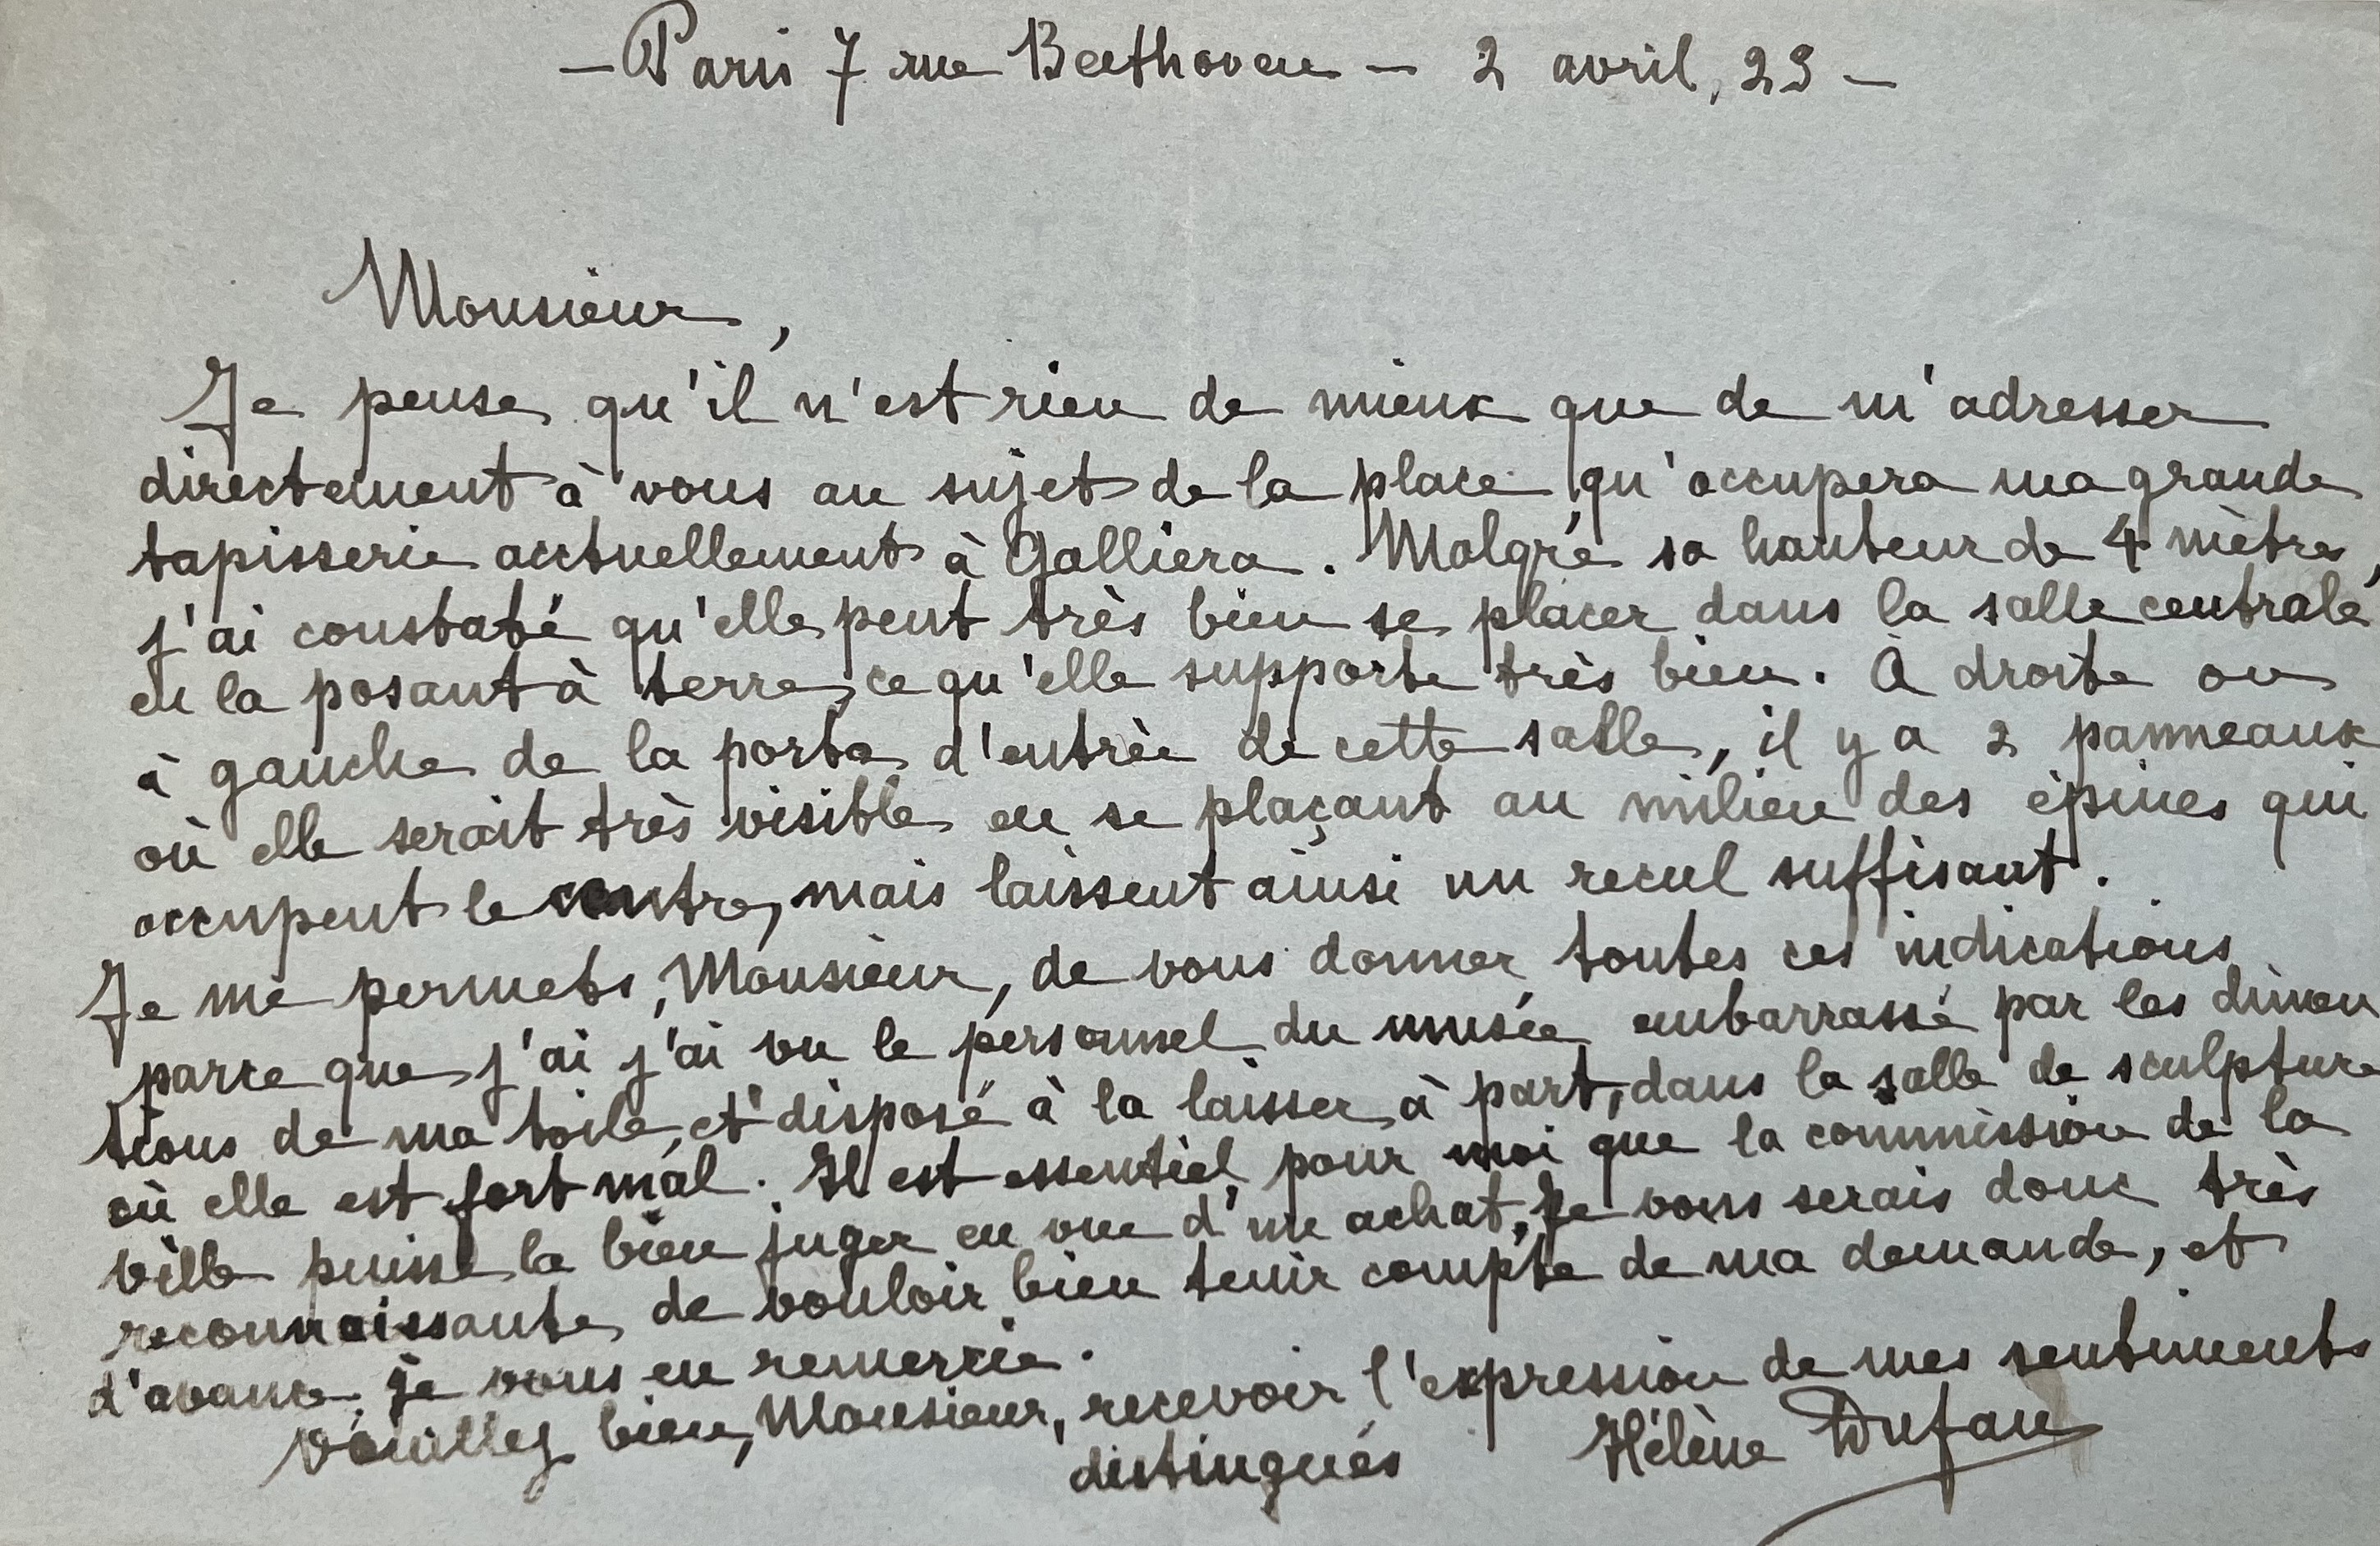 — Paris 7 rue Beethoven — 2 avril, 29 —
Monsieur,
Je pense qu'il n'est rien de mieux que de m'adresser
directement à vous au sujet de la place qu'occupera ma grande
tapisserie actuellement à Galliera. Malgré sa hauteur de 4 mètres,
j'ai constaté qu'elle peut très bien se placer dans la salle centrale
en la posant à terre, ce qu'elle supporte très bien. À droite ou
à gauche de la porte d'entrée de cette salle, il y a 2 panneaux
où elle serait très visible en se plaçant au milieu des épines qui
occupent le centre, mais laissent ainsi un recul suffisant.
Je me permets, Monsieur, de vous donner toutes ces indications
parce que j'ai j'ai vu le personnel du musée embarrassé par les dimen
tions de ma toile, et disposé à la laisser à part, dans la salle de sculpture
où elle est fort mal. Il est essentiel pour moi que la commission de la
ville puisse la bien juger en vue d'un achat, je vous serais donc très
reconnaissante de vouloir bien tenir compte de ma demande, et
d'avance je vous en remercie.
Veuillez bien, Monsieur, recevoir l'expression de mes sentiments
distingués Hélène Dufau